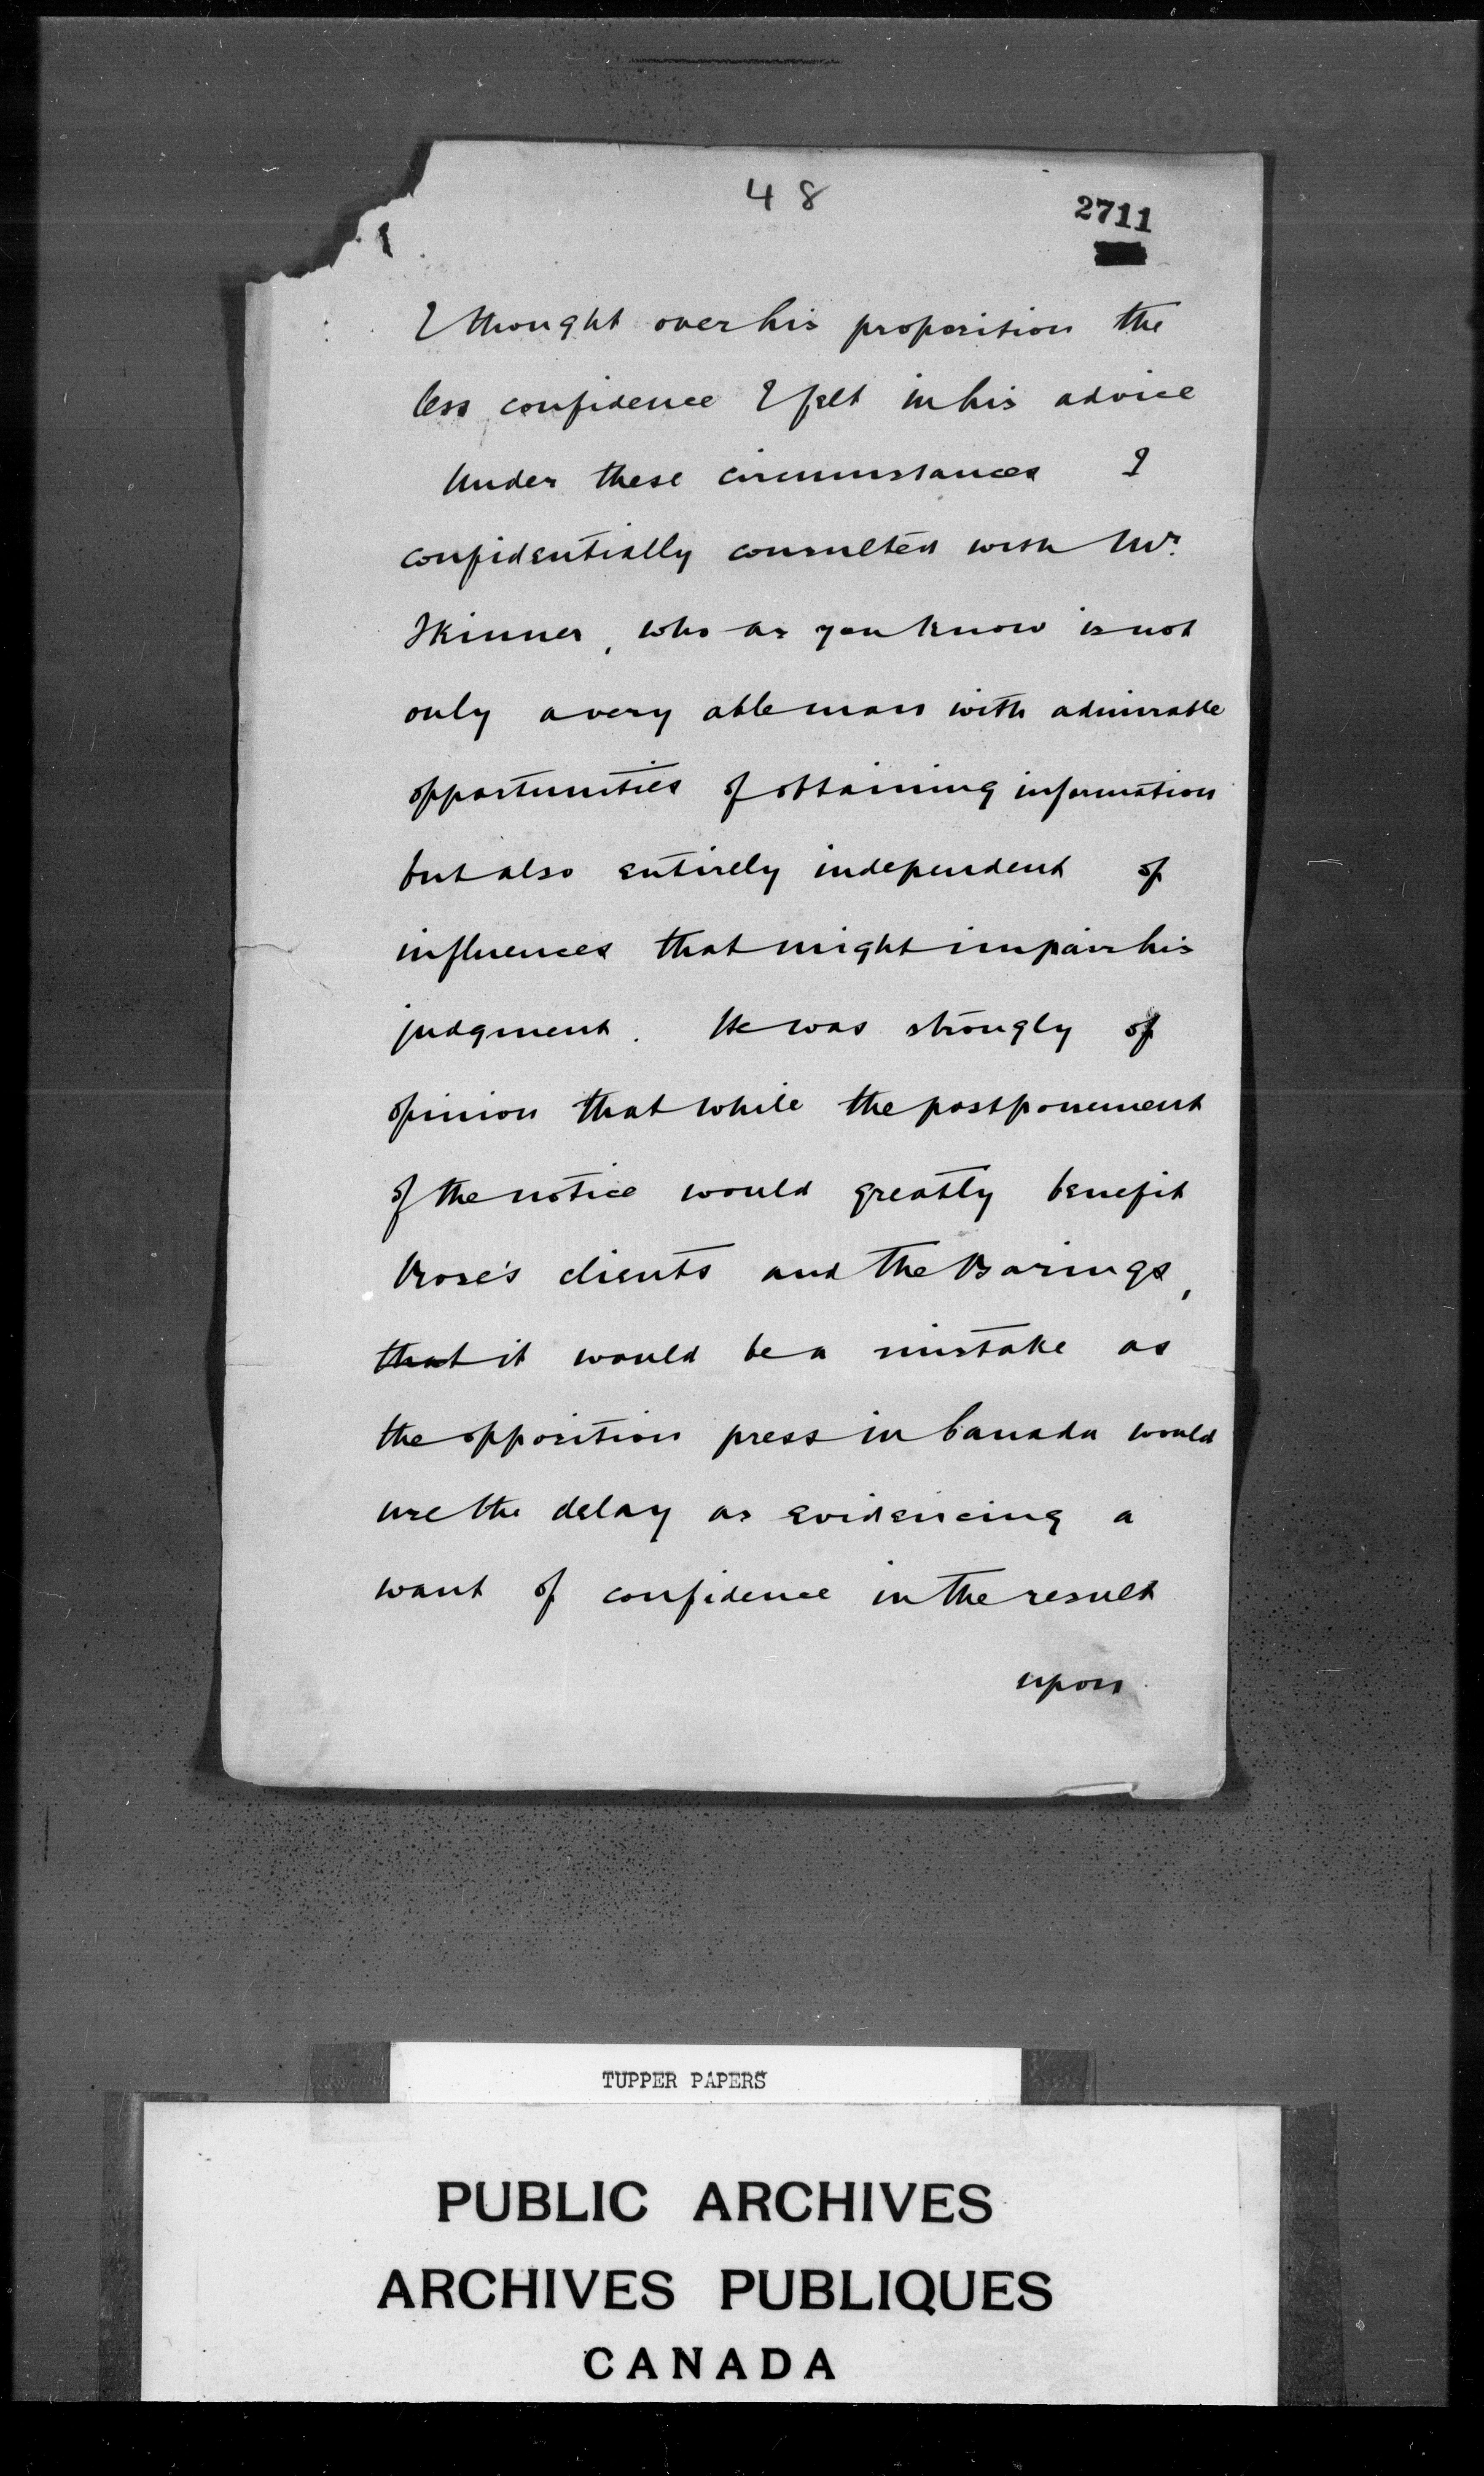 48
2711
I thought over his proposition the
less confidence I felt in his advice
Under these circumstances I
confidentially consulted with Mr.
Skinner, who as you know is not
only a very able man with admirable
opportunities of obtaining information
but also entirely independent of
influences that might impair his
judgment. He was strongly of
opinion that while the postponement
of the notice would greatly benefit
Rose's clients and the Barings,
that it would be a mistake as
the opposition press in Canada would
use the delay as evidencing a
want of confidence in the result
upon
TUPPER PAPERS
PUBLIC ARCHIVES
ARCHIVES PUBLIQUES
CANADA